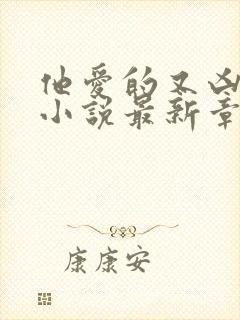 他爱的又凶
小说最新章
康康安